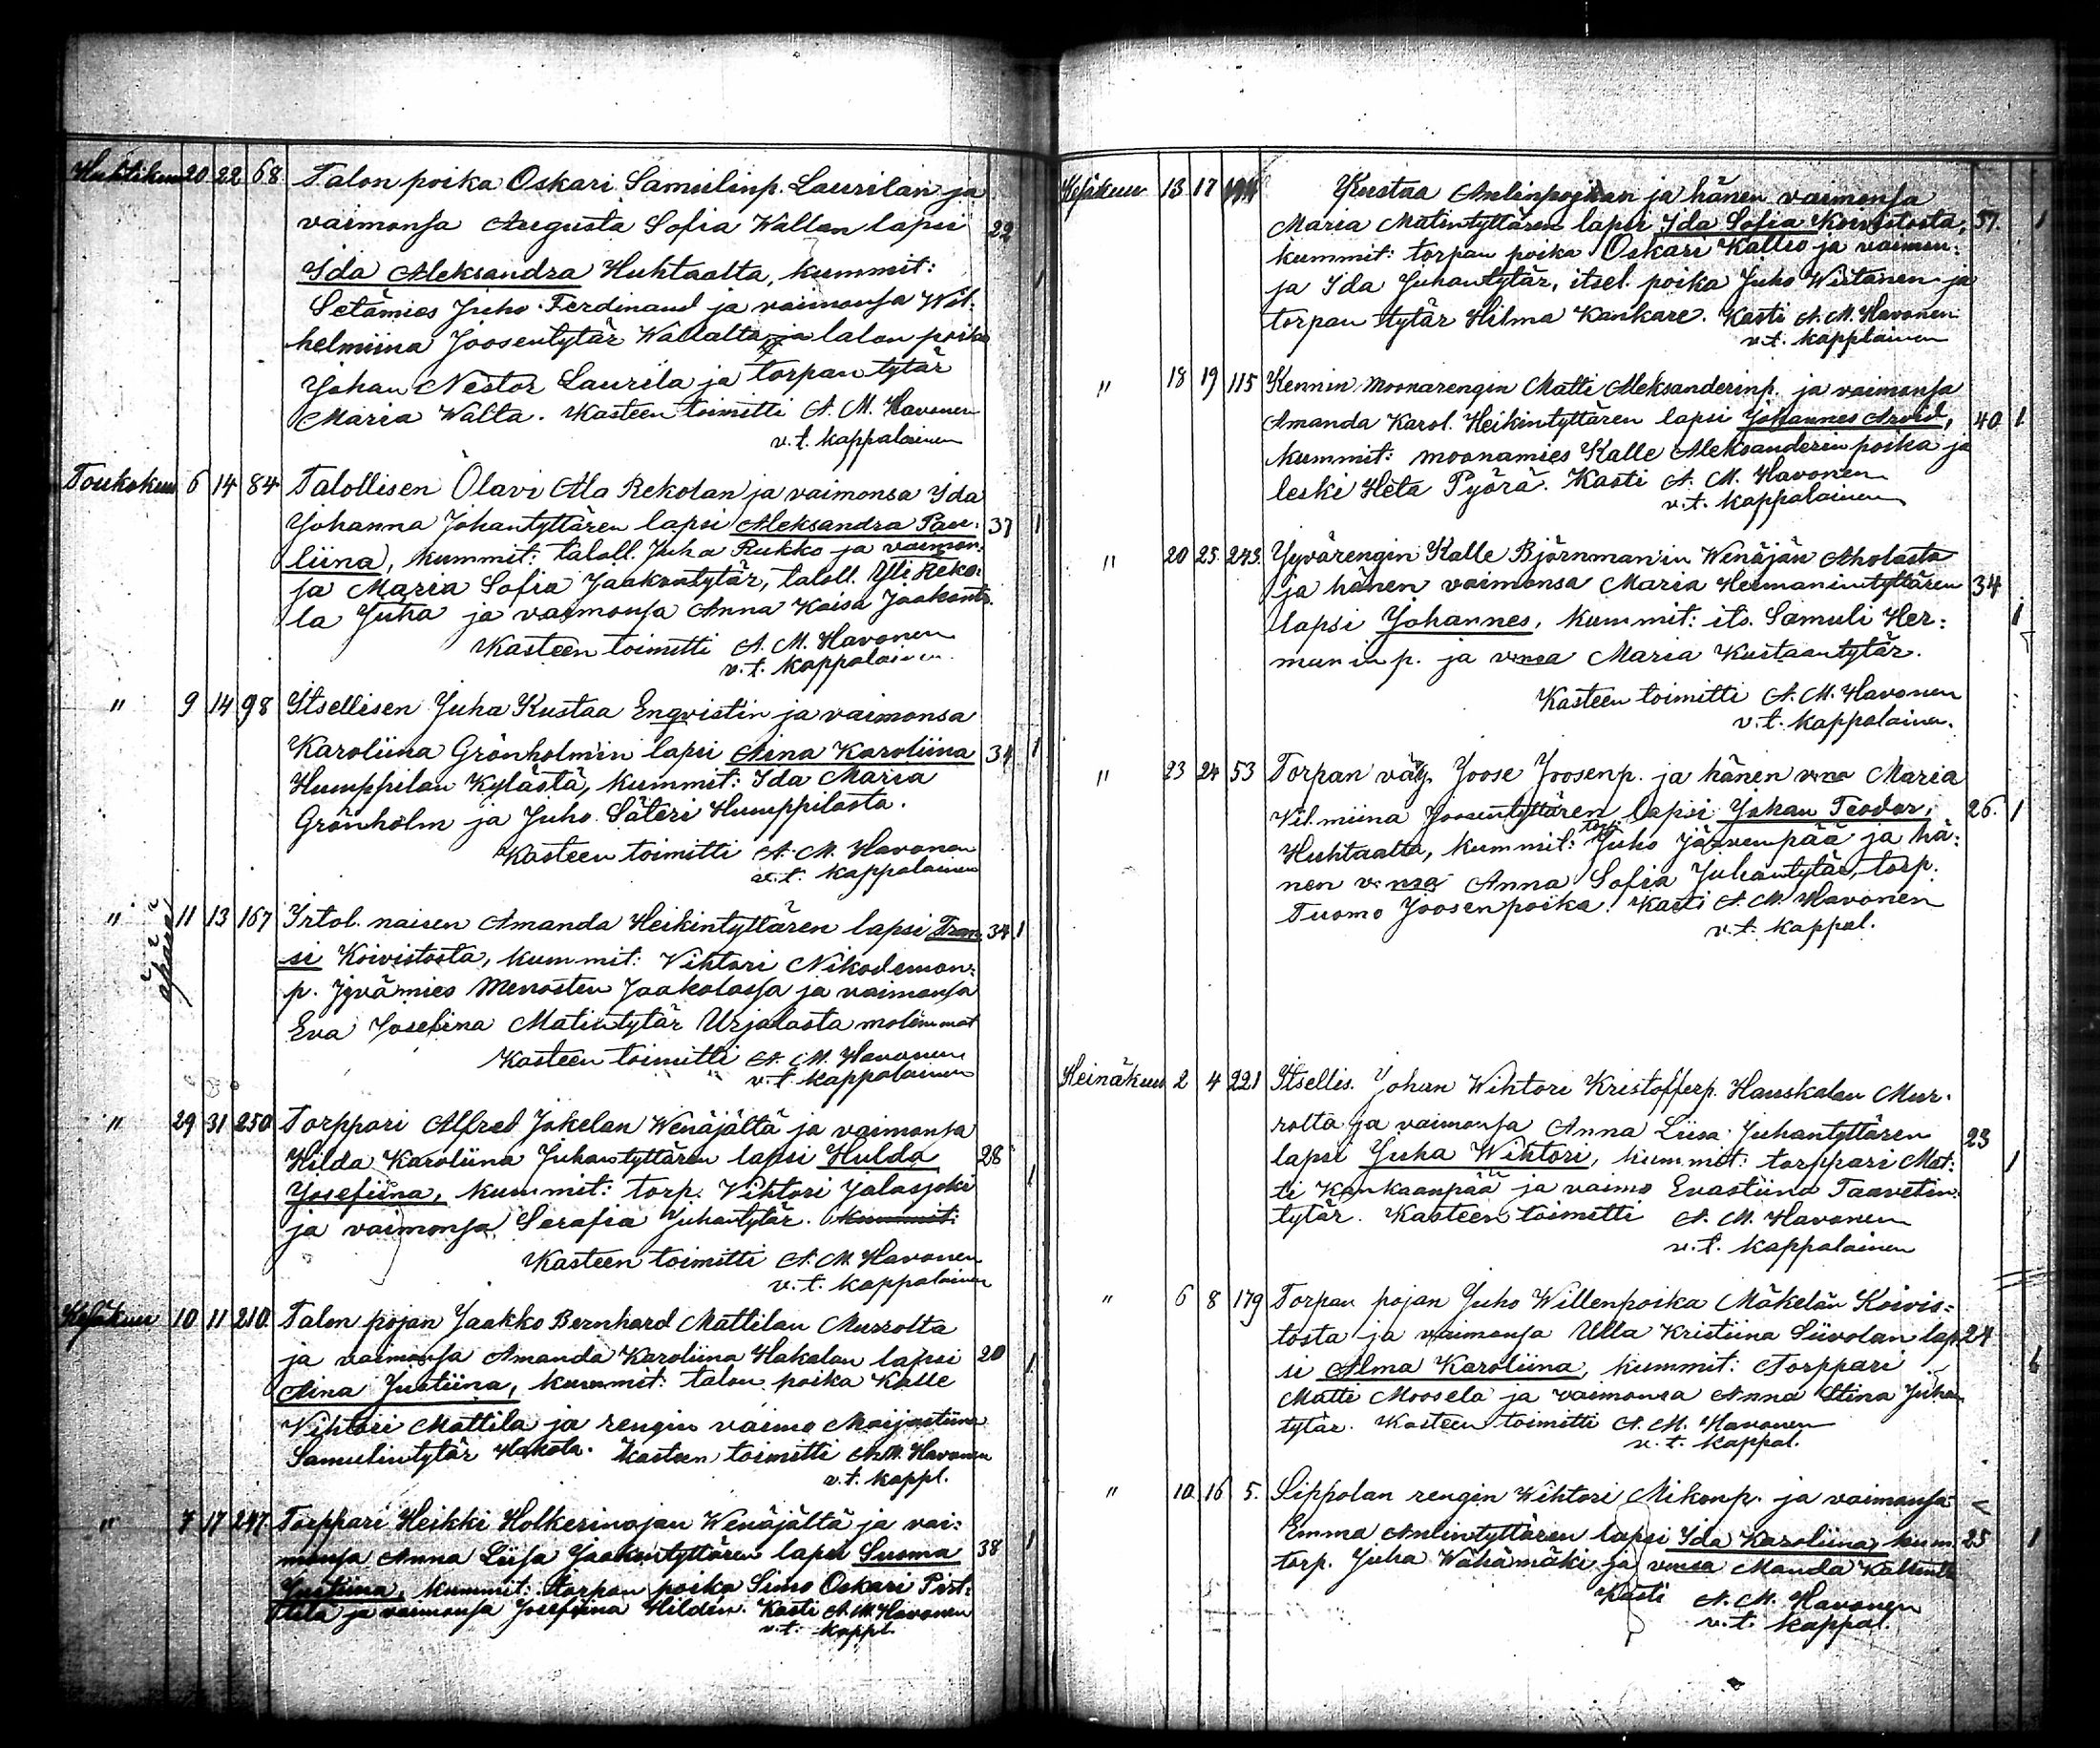 Huhtikuu 20 22 68 Talon poika Oskari Samulinp. Laurilan ja
vaimonsa Augusta Sofia Wallan lapsi 22
Ida Aleksandra Huhtaalta, kummit: 1
Setämies Juho Ferdinand ja vaimonsa Wil-
helmiina Joosentytär Wallalta ja talon poika
Johan Nestor Laurila ja torpan tytär
Maria Walta. Kasteen toimitti A. M. Havonen
v. t. kappalainen
Toukokuu 6 14 84 Talollisen Olavi Ala Rekolan ja vaimonsa Ida
Johanna Johantyttären lapsi Aleksandra Pau- 37 1
liina), kummit: taloll. Juha Rukko ja vaimon-
sa Maria Sofia Jaakontytär, taloll. Yli Reko-
la Juha ja vaimonsa Anna Kaisa Jaakont.
Kasteen toimitti A. M. Havonen
v. t. kappalainen
" 9 14 98 Itsellisen Juha Kustaa Engvistin ja vaimonsa
Karoliina Grönholmin lapsi Aina Karoliina 34 1
Humppilan Kylästä, kummit: Ida Maria
Grönholm ja Juho Säteri Humppilasta.
Kasteen toimitti A. M. Havonen
v. t. kappalainen
" 11 13 167 Irtol. naisen Amanda Heikintyttären lapsi Fran- 34 1
si Koivistosta, kummit: Vihtori Nikodemon-
p. Jyvämies Menosten Jaakolassa ja vaimonsa
Eva Josefina Matintytär Urjalasta molemmat
Kasteen toimitti A. M. Havonen
v. t. kappalainen
" 29 31 250 Torppari Alfred Jokelan Wenäjältä ja vaimonsa
Hilda Karoliina Juhantyttären lapsi Hulda 28
Josefiina, kummit: torp. Vihtori Jalasjoki 1
ja vaimonsa Serafia Juhantytär. kummit:
Kasteen toimitti A. M. Havonen
v. t. kappalainen
Kesäkuu 10 11 210. Talon pojan Jaakko Bernhard Mattilan Murrolta
ja vaimonsa Amanda Karoliina Hakalan lapsi 20 1
Aina Justiina, kummit: talon poika Kalle
Vihtori Mattila ja rengin vaimo Maijastiina
Samulintytär Hakola. Kasteen toimitti A. M. Havonen
v. t. kappl.
" 7 17 247. Torppari Heikki Holkerinojan Wenäjältä ja vai-
monsa Anna Liisa Jaakontyttären lapsi Suoma 38 1
Justiina, kummit: Torpan poika Simo Oskari Pert-
tilä ja vaimonsa Josefiina Hilden. Kasti A. M. Havonen
v. t. kappl.
Kesäkuu 13 17 Kustaa Anlinpojan ja hänen vaimonsa
Maria Matintyttären lapsi Ida Sofia Koivistosta, 37. 1
kummit: torpan poika Oskari Kallio ja vaimon-
ja Ida Juhantytär, itsel. poika Juho Wiitanen ja
torpan tytär Hilma Kankare. Kasti A. M. Havonen
v. t. kapplainen
" 18 19 115 Kennin moonarengin Matti Aleksanderinp. ja vaimonsa
Amanda Karol. Heikintyttären lapsi Johannes Arvid, 40 1
kummit: moonamies Kalle Aleksanderin poika ja
leski Heta Pyörä. Kasti A. M. Havonen
v. t. kappalainen
" 20 25. 243. Jyvärengin Kalle Björnman'in Wenäjän Aholasta
ja hänen vaimonsa Maria Hermanintyttären 34
lapsi Johannes, kummit: its. Samuli Her- 1
manin p. ja v:nsa Maria Kustaantytär.
Kasteen toimitti A. M. Havonen
v. t. kappalainen.
" 23 24 53 Torpan väv. Joose Joosenp. ja hänen v:nsa Maria
Vilmiina Joosentyttären lapsi Johan Teodor, 26. 1
Huhtaalta, kummit: torp. Juho Järvenpää ja hä-
nen v:nsa Anna Sofia Juhantytär, torp.
Tuomo Joosenpoika. Kasti A. M. Havonen
v. t. kappal.
Heinäkuu 2 4 221 Itsellis. Johan Wihtori Kristofferp. Hauskalan Mur-
rolta ja vaimonsa Anna Liisa Juhantyttären 23
lapsi Juha Wihtori, kummit: torppari Mat- 1
ti Kankaanpää ja vaimo Evastiina Taavetin-
tytär. Kasteen toimitti A. M. Havonen
v. t. kappalainen
" 6 8 179 Torpan pojan Juho Willenpoika Mäkelän Koivis-
tosta ja vaimonsa Ulla Kristiina Siivolan lap- 24
si Alma Karoliina, kummit: Torppari
Matti Moosela ja vaimonsa Anna Stina Juhan
tytär. Kasteen toimitti A. M. Havonen
v. t. kappal.
" 10 16 5. Sippolan rengin Wihtori Mikonp. ja vaimonsa
Emma Anlintyttären lapsi Ida Karoliina, kum. 25 1
torp. Juha Wähämäki ja v:nsa Manda
Kasti A. M. Havonen
v. t. kappal.